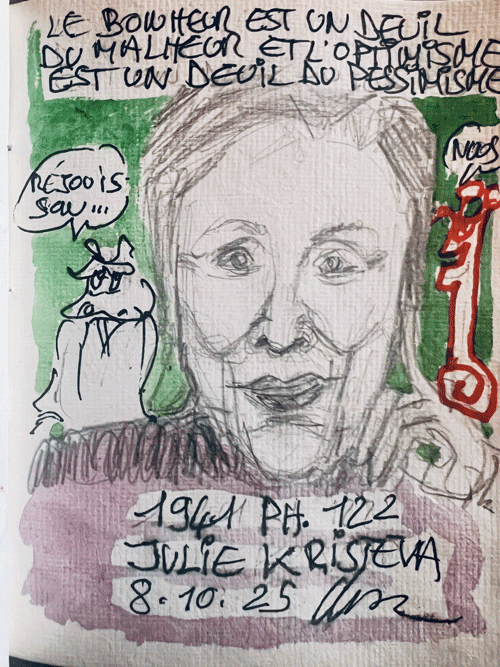 LE BONHEUR EST UN DEUIL
DU MALHEUR ET L'OPTIMISME
EST UN DEUIL DU PESSIMISME
RÉJOUIS
SON...
NOUS
1941 PH. 122
JULIE KRISTEVA
8.10.25